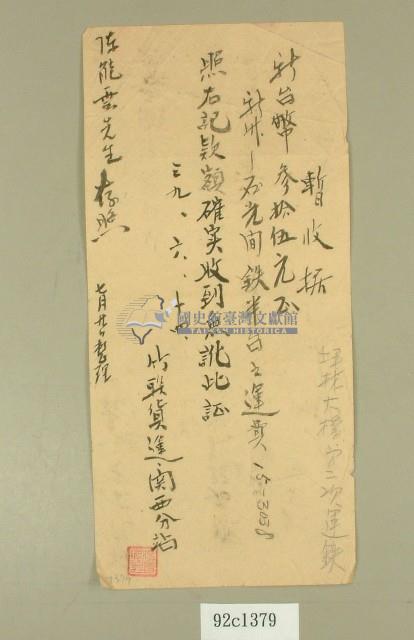 坪林大橋第二次運鉄
暫收据
新台幣參拾伍元正
新竹—石光間鉄半台之運費
照右記款額確实收到無訛此証
三九、六、十
竹联貨運関西分站
陈能雲先生 存照
七月廿九日整理
國史館臺灣文獻館
TAIWAN HISTORICA
92c1379